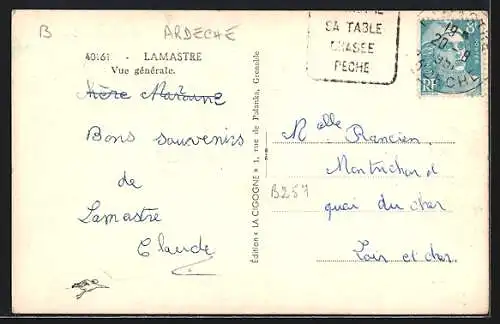 B
ARDECHE
SA TABLE
CHASSE
PECHE
19
20 - 8
RF
40161 - LAMASTRE
Vue générale.
Bons souvenirs
de
Lamastre
Claude
Edition « LA CIGOGNE » 1, rue de Palanka, Grenoble
Melle Rancien
B257
Montrichard
quai du cher
Loir et cher.